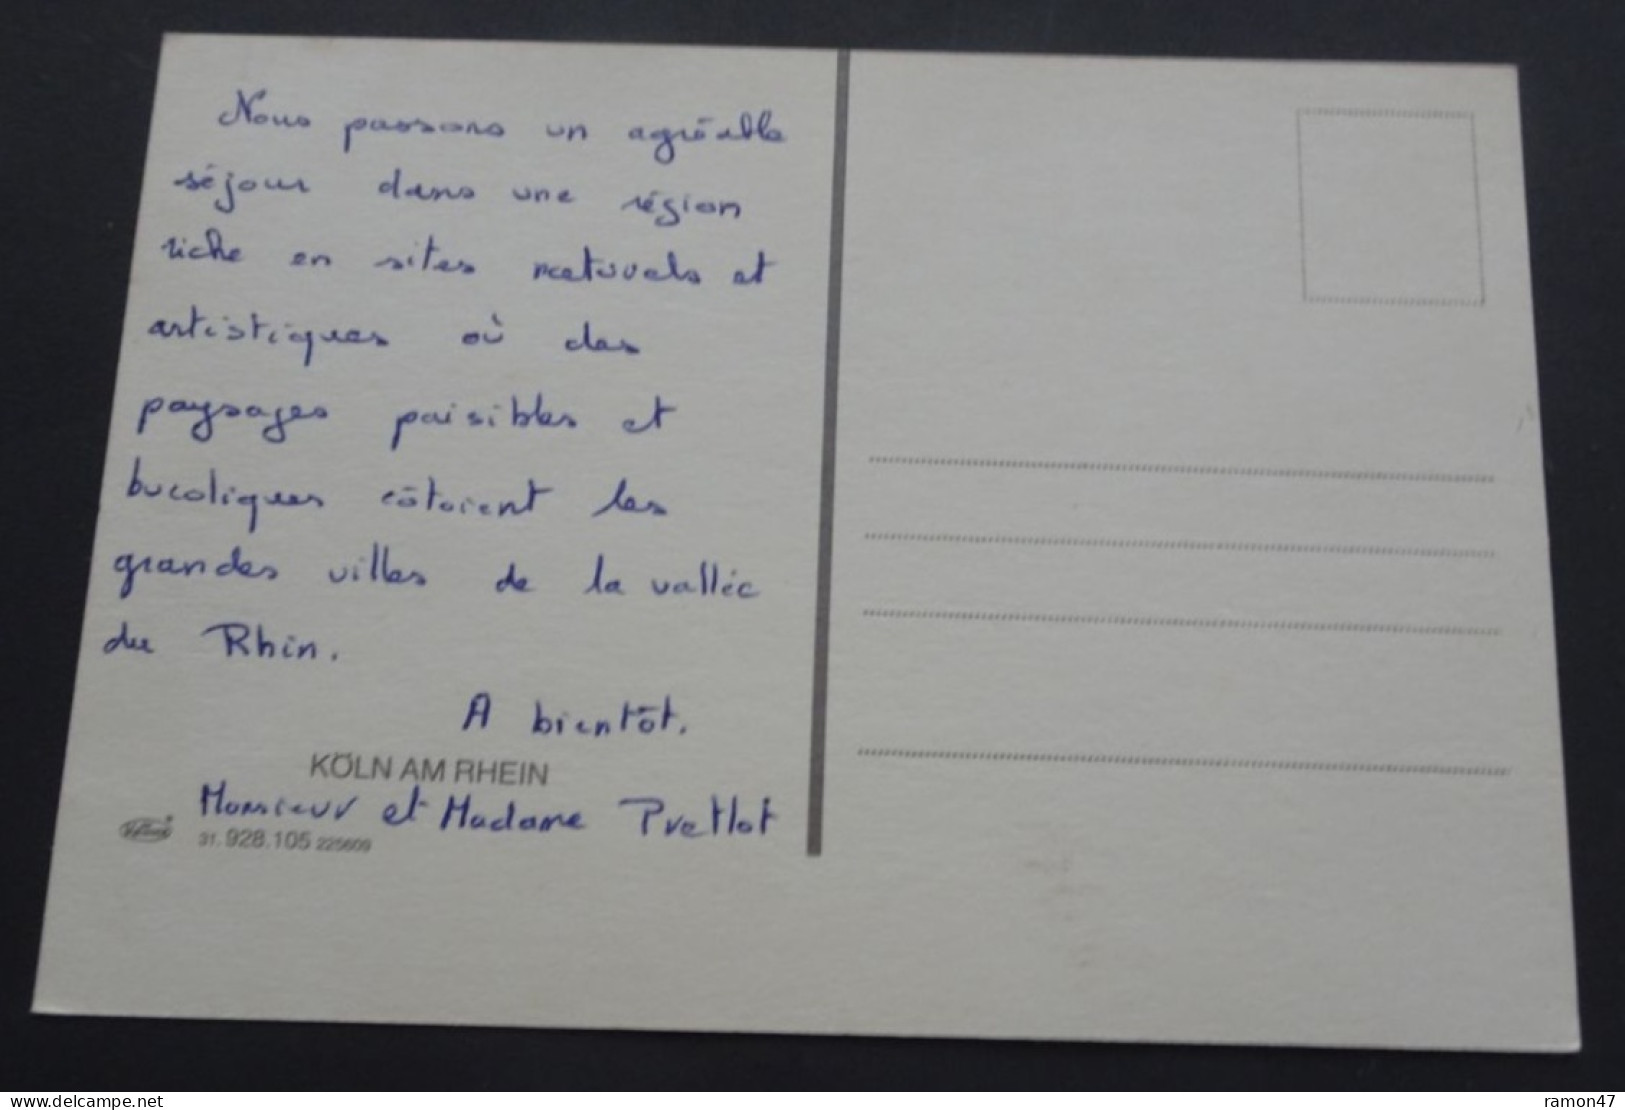 Nous passons un agréable
séjour dans une région
riche en sites naturels et
artistiques où des
paysages paisibles et
bucoliques côtoient les
grandes villes de la vallée
du Rhin.
A bientôt.
KÖLN AM RHEIN
Monsieur et Madame Pretlot
31.928.105 225609
www.delcampe.net
ramon47